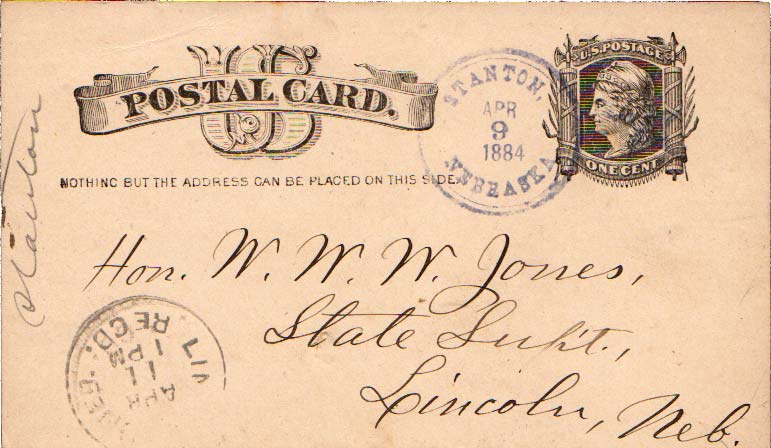 U.S. POSTAGE
POSTAL CARD.
STANTON,
APR
9
1884
NEBRASKA
ONE CENT
NOTHING BUT THE ADDRESS CAN BE PLACED ON THIS SIDE.
Stanton
Hon. W. W. W. Jones,
State Supt.,
Lincoln, Neb.
REC'D.
1 PM
APR